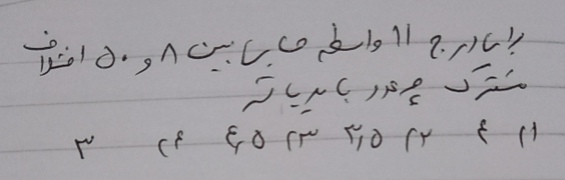 برای درج ۱۱ واسطه حسابی بین ۸ و ۵۰ اختلاف
مشترک چه عدد باید باشد
۱) ۴ ۲) ۳,۵ ۳) ۴,۵ ۴) ۳